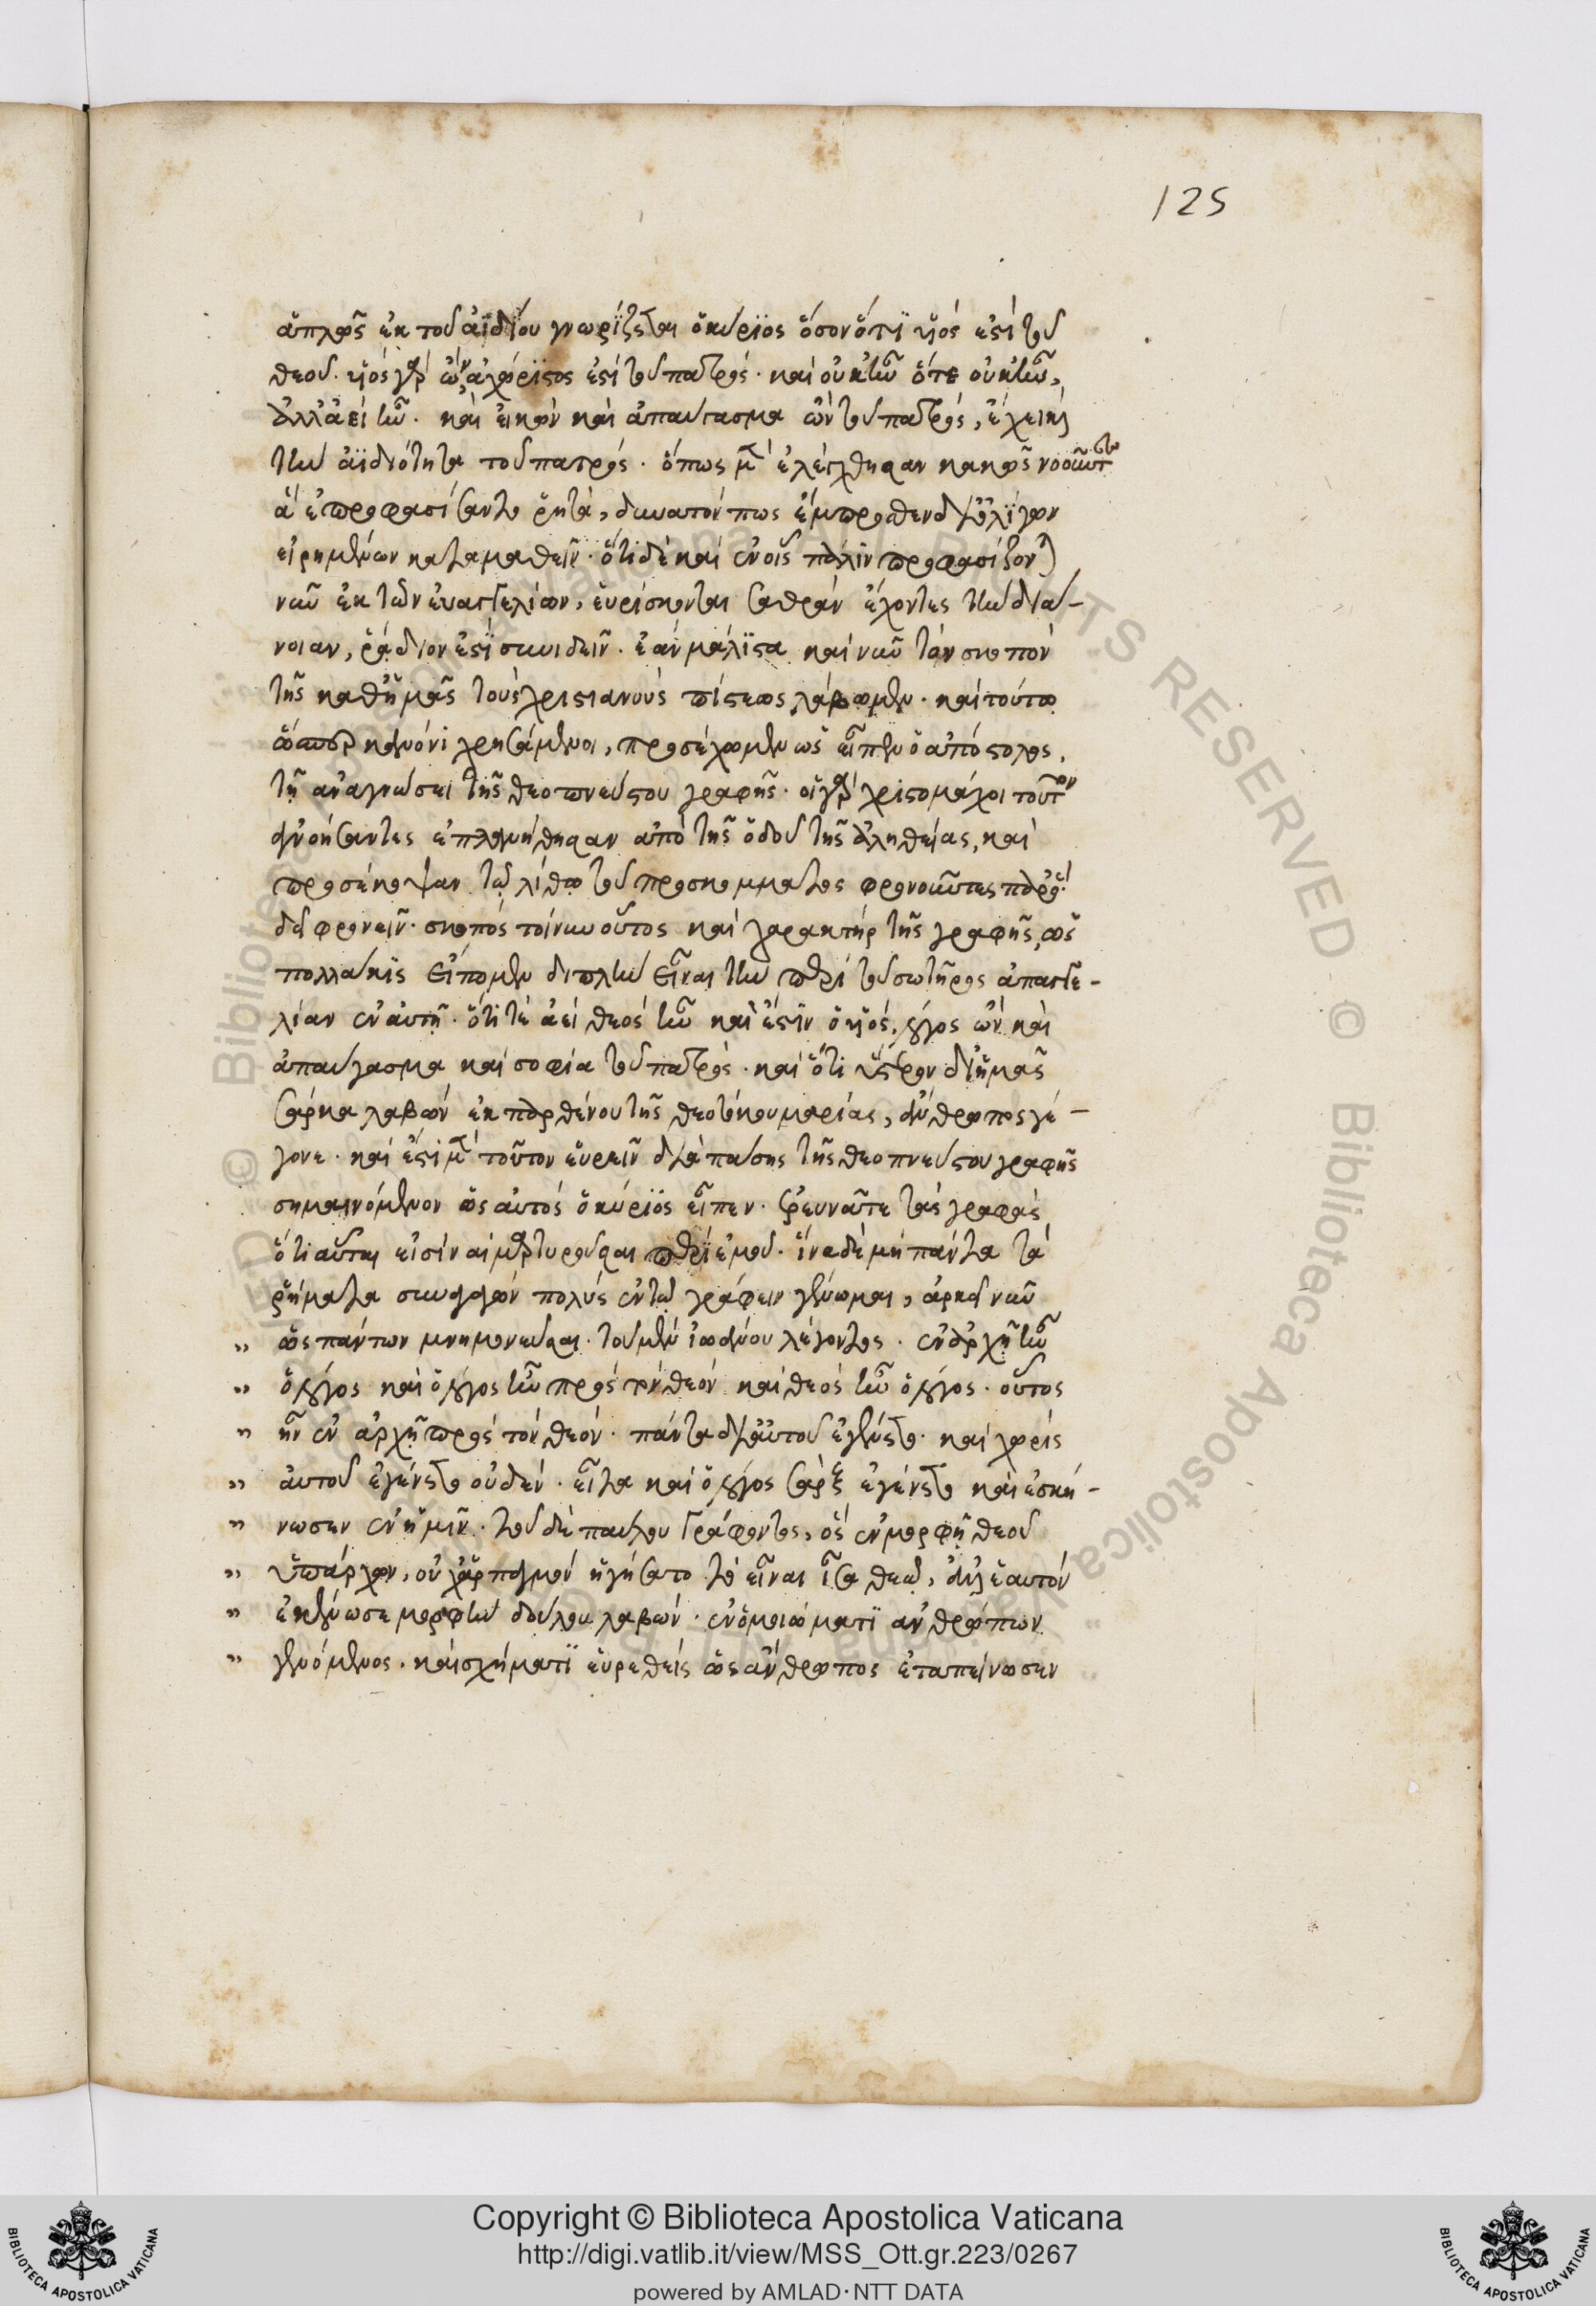 125
ἁπλῶς ἐκ τοῦ ἀϊδίου γνωρίζεται ὁ κύριος ὅσον ὅτι υἱός ἐστι τοῦ
θεοῦ. υἱός γὰρ ὢν ἀχώριστός ἐστι τοῦ πατρός. καὶ οὐκ ἦν ὅτε οὐκ ἦν,
ἀλλ' ἀεὶ ἦν. καὶ εἰκὼν καὶ ἀπαύγασμα ὢν τοῦ πατρός, ἔχει καὶ
τὴν ἀϊδιότητα τοῦ πατρός. ὅπως μὲν ἐλέγχθησαν κακῶς νοοῦντες
ἃ ἐπροφασίσαντο ῥητά, δυνατόν πως ἔμπροσθεν δι' ὀλίγων
εἰρημένων καταμαθεῖν. ὅτι δὲ καὶ ἐν οἷς πάλιν προφασίζονται
νῦν ἐκ τῶν εὐαγγελίων, εὑρίσκονται σαθρὰν ἔχοντες τὴν διά-
νοιαν, ῥάδιόν ἐστι συνιδεῖν. ἐὰν μάλιστα καὶ νῦν τὸν σκοπὸν
τῆς καθ' ἡμᾶς τοὺς χριστιανοὺς πίστεως λάβωμεν. καὶ τούτῳ
ὥσπερ κανόνι χρησάμενοι, προσέχωμεν ὡς εἶπεν ὁ ἀπόστολος,
τῇ ἀναγνώσει τῆς θεοπνεύστου γραφῆς. οἱ γὰρ χριστομάχοι τοῦτον
ἀγνοήσαντες ἐπλανήθησαν ἀπὸ τῆς ὁδοῦ τῆς ἀληθείας, καὶ
προσέκοψαν τῷ λίθῳ τοῦ προσκόμματος φρονοῦντες παρ' ὃ
δεῖ φρονεῖν. σκοπὸς τοίνυν οὗτος καὶ χαρακτὴρ τῆς γραφῆς, ὡς
πολλάκις εἴπομεν διπλῆν εἶναι τὴν περὶ τοῦ σωτῆρος ἀπαγγε-
λίαν ἐν αὐτῇ. ὅτι τε ἀεὶ θεὸς ἦν καὶ ἔστιν ὁ υἱός, λόγος ὢν καὶ
ἀπαύγασμα καὶ σοφία τοῦ πατρός. καὶ ὅτι ὕστερον δι' ἡμᾶς
σάρκα λαβὼν ἐκ παρθένου τῆς θεοτόκου μαρίας, ἄνθρωπος γέ-
γονε. καὶ ἔστι μὲν τοῦτον εὑρεῖν διὰ πάσης τῆς θεοπνεύστου γραφῆς
σημαινόμενον ὡς αὐτὸς ὁ κύριος εἶπεν. ἐρευνᾶτε τὰς γραφάς
ὅτι αὗται εἰσὶν αἱ μαρτυροῦσαι περὶ ἐμοῦ. ἵνα δὲ μὴ πάντα τὰ
ῥήματα συναγαγὼν πολὺς ἐν τῷ γράφειν γένωμαι, ἀρκεῖ νῦν
ὡς πάντων μνημονεῦσαι. τοῦ μὲν ἰωάννου λέγοντος. ἐν ἀρχῇ ἦν
ὁ λόγος καὶ ὁ λόγος ἦν πρὸς τὸν θεόν καὶ θεὸς ἦν ὁ λόγος. οὗτος
ἦν ἐν ἀρχῇ πρὸς τὸν θεόν. πάντα δι' αὐτοῦ ἐγένετο. καὶ χωρὶς
αὐτοῦ ἐγένετο οὐδέν. εἶτα καὶ ὁ λόγος σὰρξ ἐγένετο καὶ ἐσκή-
νωσεν ἐν ἡμῖν. τοῦ δὲ παύλου γράφοντος, ὃς ἐν μορφῇ θεοῦ
ὑπάρχων, οὐχ ἁρπαγμὸν ἡγήσατο τὸ εἶναι ἶσα θεῷ, ἀλλ' ἑαυτὸν
ἐκένωσε μορφὴν δούλου λαβών. ἐν ὁμοιώματι ἀνθρώπων
γενόμενος. καὶ σχήματι εὑρεθεὶς ὡς ἄνθρωπος ἐταπείνωσεν
Copyright © Biblioteca Apostolica Vaticana
http://digi.vatlib.it/view/MSS_Ott.gr.223/0267
powered by AMLAD·NTT DATA